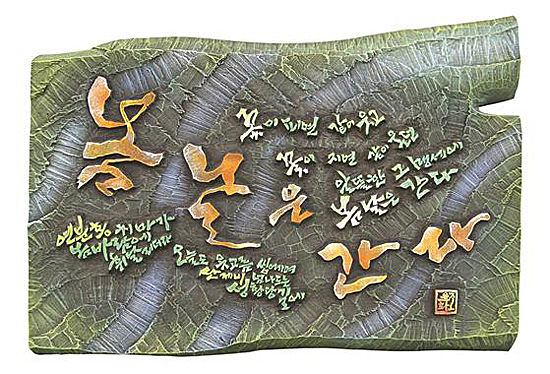 봄날은 간다
연분홍 치마가
봄바람에
휘날리더라
오늘도 옷고름
산제비 넘나드는
성황당 길에
꽃이 피면 같이 웃고
꽃이 지면 같이 울던
알뜰한 그 맹세에
봄날은 간다